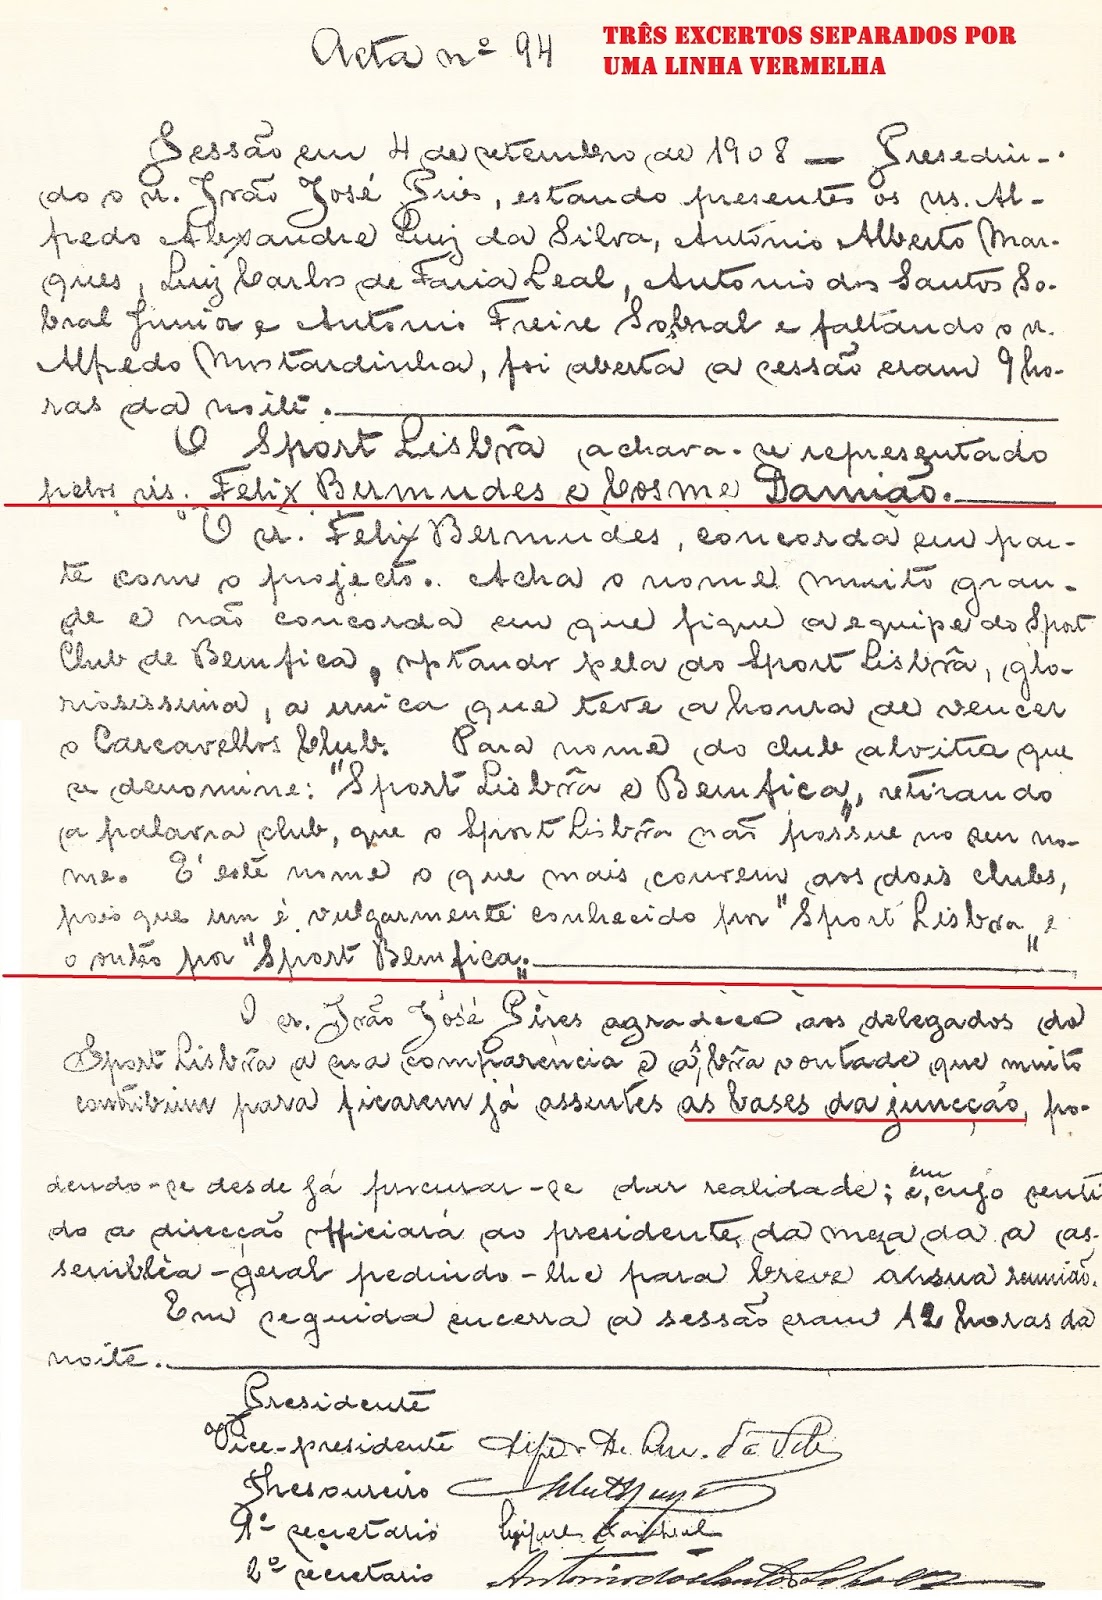 Acta nº 94
TRÊS EXCERTOS SEPARADOS POR
UMA LINHA VERMELHA
Sessão em 4 de setembro de 1908 — Presedin-
do o sr. João José Pires, estando presentes os srs. Al-
fredo Alexandre Luiz da Silva, António Alberto Mar-
ques, Luiz Carlos de Faria Leal, António dos Santos So-
bral Junior e António Freire Sobral e faltando o sr.
Alfredo Mostardinha, foi aberta a sessão eram 9 ho-
ras da noite.
O Sport Lisbôa achava-se representado
pelos srs. Felix Bermudes e Cosme Damião.
O sr. Felix Bermudes, concorda em par-
te com o projecto. Acha o nome muito gran-
de e não concorda em que fique a equipe do Sport
Club de Bemfica, optando pela do Sport Lisbôa, glo-
riosissima, a unica que teve a honra de vencer
o Carcavellos Club. Para nome do club alvitra que
se denomine: "Sport Lisbôa e Bemfica", retirando
a palavra club, que o Sport Lisbôa não possue no seu no-
me. E' este nome o que mais convem aos dois clubs,
pois que um é vulgarmente conhecido por "Sport Lisboa" e
o outro por "Sport Bemfica".
O sr. João José Pires agradece aos delegados do
Sport Lisbôa a sua comparência e a bôa vontade que muito
contribuiu para ficarem já assentes as bases da juncção, po-
dendo-se desde já procurar-se dar realidade; em cujo senti
do a direcção officiará ao presidente da meza da a as-
semblêa-geral pedindo-lhe para breve a sua reunião.
Em seguida encerra a sessão eram 12 horas da
noite.
Presidente
Vice-presidente
Thesoureiro
1º secretario
2º secretario António dos Santos